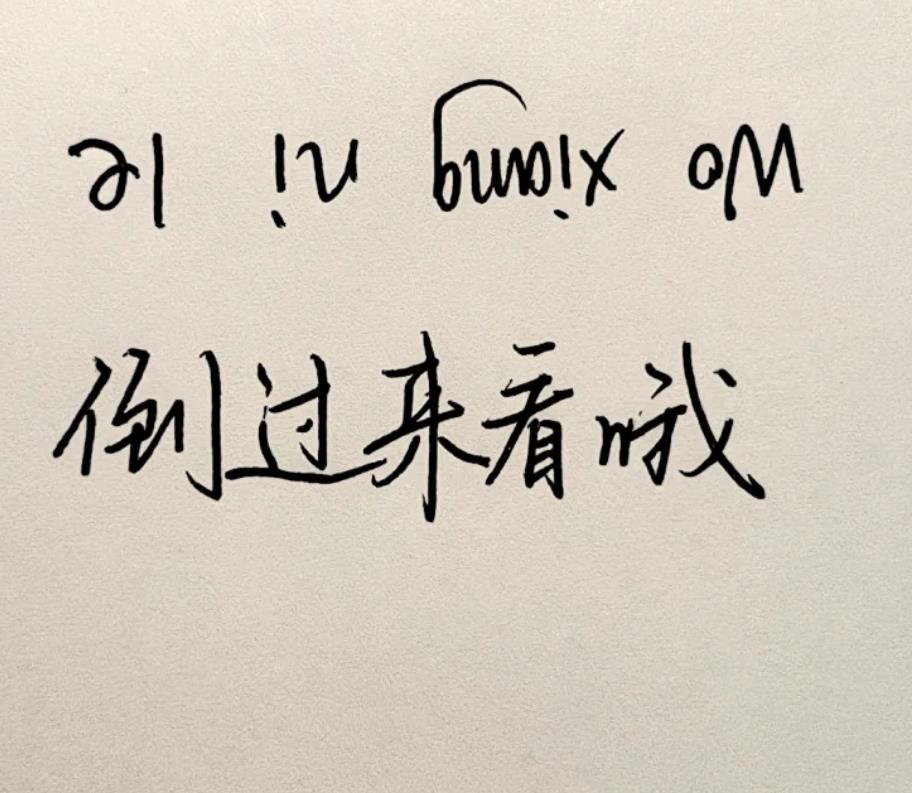 Wo xiang ni le
倒过来看哦